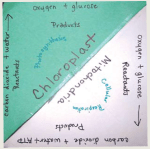 oxygen + glucose
Products
Photosynthesis
Chloroplast
carbon dioxide + water
Reactants
Mitochondria
Cellular
Respiration
Reactants
oxygen + glucose
Products
carbon dioxide + water + ATP